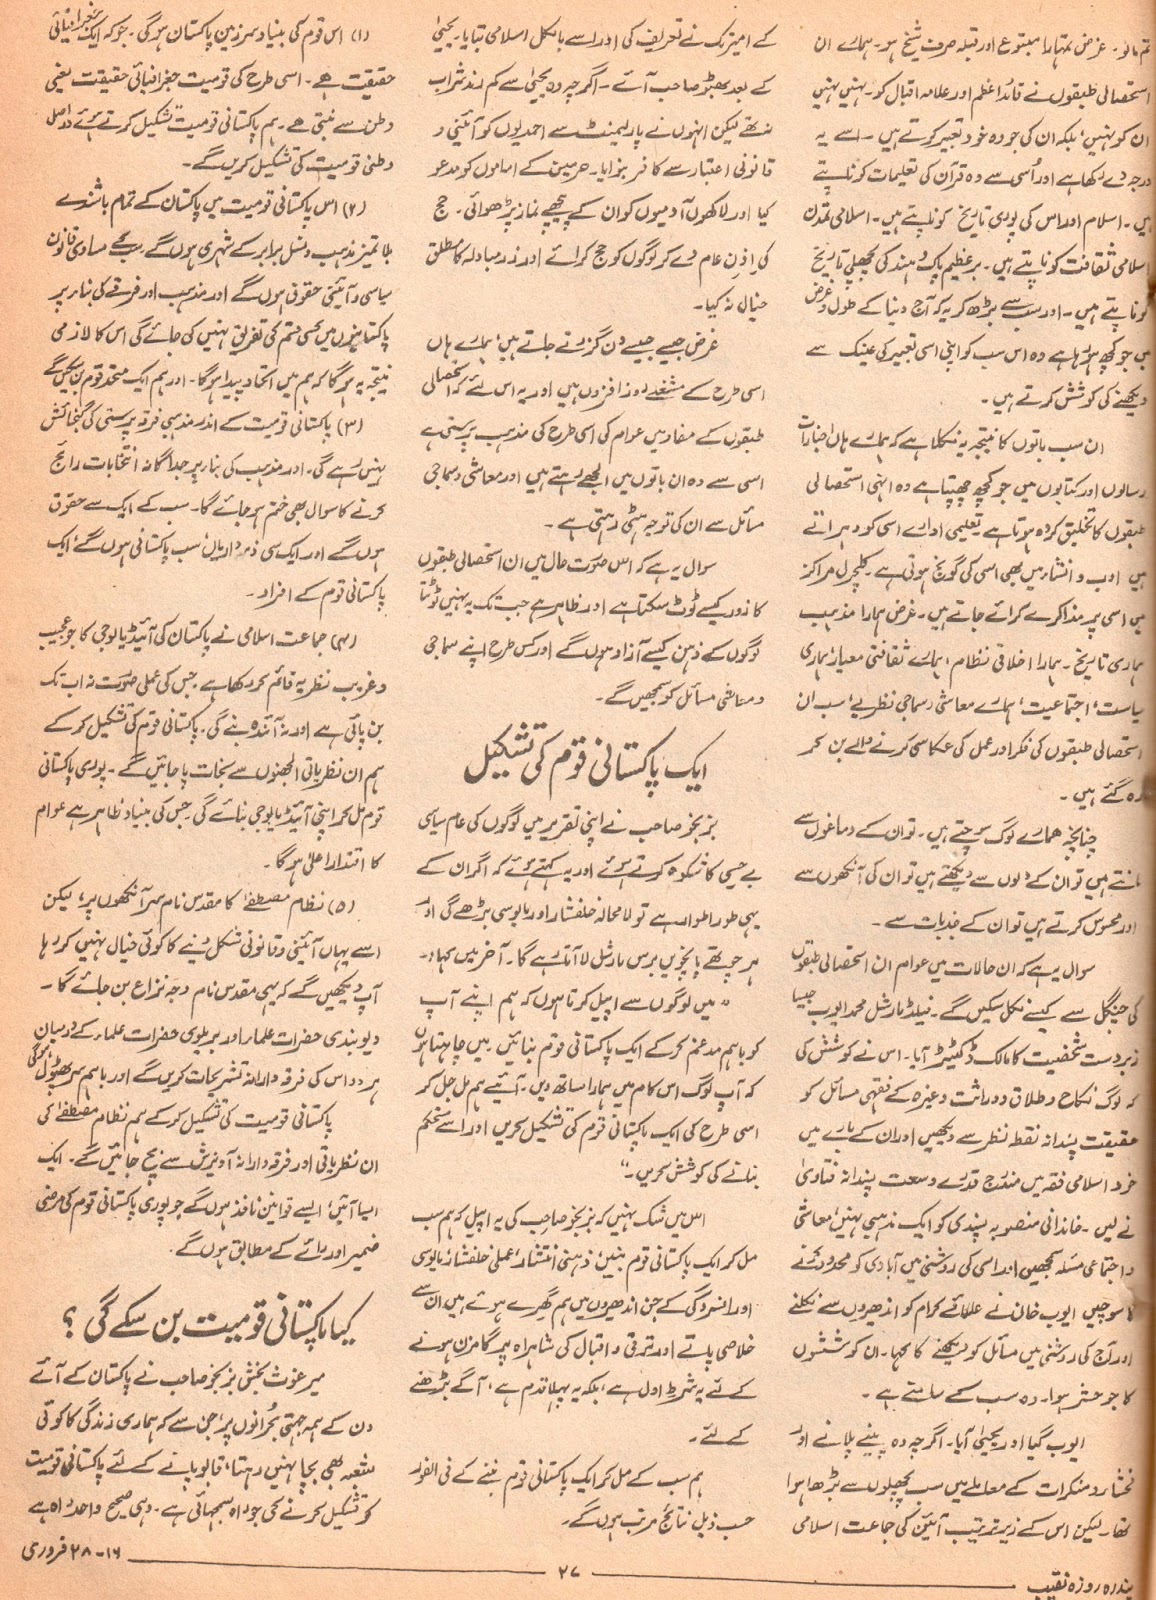 تم مانو۔ غرض تمہارا متبوع اور قبلہ صرف شیخ ہو۔ ہمارے ان
استحصالی طبقوں نے قائد اعظم اور علامہ اقبال کو۔ نہیں نہیں
ان کو نہیں، بلکہ ان کی جو وہ خود تعبیر کرتے ہیں۔ اسے یہ
درجہ دے رکھا ہے اور اُسی سے وہ قرآن کی تعلیمات کو ناپتے
ہیں۔ اسلام اور اس کی پوری تاریخ کو ناپتے ہیں۔ اسلامی تمدن
اسلامی ثقافت کو ناپتے ہیں۔ برعظیم پاک و ہند کی پچھلی تاریخ
کو ناپتے ہیں۔ اور سب سے بڑھ کر یہ کہ آج دنیا کے طول و عرض
میں جو کچھ ہو رہا ہے وہ اس سب کو اپنی اسی تعبیر کی عینک سے
دیکھنے کی کوشش کرتے ہیں۔
ان سب باتوں کا نتیجہ یہ نکلا ہے کہ ہمارے ہاں اخبارات
رسالوں اور کتابوں میں جو کچھ چھپتا ہے وہ انہی استحصالی
طبقوں کا تخلیق کردہ ہوتا ہے تعلیمی ادارے اسی کو دہراتے
ہیں ادب و انشاء میں بھی اسی کی گونج ہوتی ہے۔ کلچرل مراکز
میں اسی پر مذاکرے کرائے جاتے ہیں۔ غرض ہمارا مذہب
ہماری تاریخ۔ ہمارا اخلاقی نظام، ہمارے ثقافتی معیار، ہماری
سیاست، اجتماعیت، ہمارے معاشی و سماجی نظریے، سب ان
استحصالی طبقوں کی فکر اور عمل کی عکاسی کرنے والے بن کر
رہ گئے ہیں۔
چنانچہ ہمارے لوگ سوچتے ہیں۔ تو ان کے دماغوں سے
مانتے ہیں تو ان کے دلوں سے دیکھتے ہیں تو ان کی آنکھوں سے
اور محسوس کرتے ہیں تو ان کے جذبات سے۔
سوال یہ ہے کہ ان حالات میں عوام ان استحصالی طبقوں
کی چنگل سے کیسے نکل سکیں گے۔ فیلڈ مارشل محمد ایوب جیسا
زبردست شخصیت کا مالک ڈکٹیٹر آیا۔ اس نے کوشش کی
کہ لوگ نکاح و طلاق و وراثت وغیرہ کے فقہی مسائل کو
حقیقت پسندانہ نقطہ نظر سے دیکھیں اور ان کے بارے میں
خود اسلامی فقہ میں مندرج قدرے وسعت پسندانہ فتاویٰ
لیں۔ خاندانی منصوبہ بندی کو ایک مذہبی نہیں، معاشی
و اجتماعی مسئلہ سمجھیں اور اسی کی روشنی میں آبادی کو محدود کرنے
کا سوچیں ایوب خان نے علمائے کرام کو اندھیروں سے نکلنے
اور آج کی روشنی میں مسائل کو دیکھنے کا کہا۔ ان کوششوں
کا جو حشر ہوا۔ وہ سب کے سامنے ہے۔
ایوب گیا اور یحییٰ آیا۔ اگرچہ وہ پینے پلانے اور
فحشاء و منکرات کے معاملے میں سب پچھلوں سے بڑھا ہوا
تھا۔ لیکن اس کے زیر ترتیب آئین کی جماعت اسلامی
کے امیر تک نے تعریف کی اور اسے بالکل اسلامی بتایا۔ یحییٰ
کے بعد بھٹو صاحب آئے۔ اگرچہ وہ یحییٰ سے کم رند شراب
نہ تھے لیکن انہوں نے پارلیمنٹ سے احمدیوں کو آئینی و
قانونی اعتبار سے کافر بنوایا۔ حرمین کے اماموں کو مدعو
کیا اور لاکھوں آدمیوں کو ان کے پیچھے نماز پڑھوائی۔ حج
کی اِذنِ عام دے کر لوگوں کو حج کرائے اور زر مبادلہ کا مطلق
خیال نہ کیا۔
غرض جیسے جیسے دن گزرتے جاتے ہیں، ہمارے ہاں
اسی طرح کے مشغلے روز افزوں ہیں اور یہ اس لئے کہ استحصالی
طبقوں کے مفاد میں عوام کی اسی طرح کی مذہب پرستی ہے
اسی سے وہ ان باتوں میں الجھے رہتے ہیں اور معاشی و سماجی
مسائل سے ان کی توجہ ہٹی رہتی ہے۔
سوال یہ ہے کہ اس صورت حال میں ان استحصالی طبقوں
کا زور کیسے ٹوٹ سکتا ہے اور ظاہر ہے جب تک یہ نہیں ٹوٹتا
لوگوں کے ذہن کیسے آزاد ہوں گے اور کس طرح اپنے سماجی
و معاشی مسائل کو سمجھیں گے۔
ایک پاکستانی قوم کی تشکیل
بزنجو صاحب نے اپنی تقریر میں لوگوں کی عام سیاسی
بے حسی کا شکوہ کرتے ہوئے اور یہ کہتے ہوئے کہ اگر ان کے
یہی طور اطوار رہے تو لامحالہ خلفشار اور مایوسی بڑھے گی اور
ہر چوتھے پانچویں برس مارشل لا آتا رہے گا۔ آخر میں کہا۔
"میں لوگوں سے اپیل کرتا ہوں کہ ہم اپنے آپ
کو باہم مدغم کر کے ایک پاکستانی قوم بنائیں۔ میں چاہتا ہوں
کہ آپ لوگ اس کام میں ہمارا ساتھ دیں۔ آئیے ہم مل جل کر
اسی طرح کی ایک پاکستانی قوم کی تشکیل کریں اور اسے مستحکم
بنانے کی کوشش کریں۔"
اس میں شک نہیں کہ بزنجو صاحب کی یہ اپیل کہ ہم سب
مل کر ایک پاکستانی قوم بنیں، ذہنی انتشار، عملی خلفشار، مایوسی
اور افسردگی کے جن اندھیروں میں ہم گھرے ہوئے ہیں ان سے
خلاصی پانے اور ترقی و اقبال کی شاہراہ پر گامزن ہونے
کے لئے یہ شرط اول ہے، بلکہ یہ پہلا قدم ہے، آگے بڑھنے
کے لئے۔
ہم سب کے مل کر ایک پاکستانی قوم بننے کے فی الفور
حسب ذیل نتائج مرتب ہوں گے۔
(۱) اس قوم کی بنیاد سرزمین پاکستان ہوگی۔ جو کہ ایک جغرافیائی
حقیقت ہے۔ اسی طرح کی قومیت جغرافیائی حقیقت یعنی
وطن سے بنتی ہے۔ ہم پاکستانی قومیت تشکیل کرتے ہوئے دراصل
وطنی قومیت کی تشکیل کریں گے۔
(۲) اس پاکستانی قومیت میں پاکستان کے تمام باشندے
بلا تمیز مذہب و نسل برابر کے شہری ہوں گے۔ سب کے مساوی قانونی
سیاسی و آئینی حقوق ہوں گے اور مذہب اور فرقے کی بناء پر
پاکستانیوں میں کسی قسم کی تفریق نہیں کی جائے گی اس کا لازمی
نتیجہ یہ ہوگا کہ ہم میں اتحاد پیدا ہوگا۔ اور ہم ایک متحد قوم بن سکیں گے
(۳) پاکستانی قومیت کے اندر مذہبی فرقہ پرستی کی گنجائش
نہیں رہے گی۔ اور مذہب کی بناء پر جداگانہ انتخابات رائج
کرنے کا سوال بھی ختم ہو جائے گا۔ سب کے ایک سے حقوق
ہوں گے اور ایک سی ذمہ داریاں، سب پاکستانی ہوں گے، ایک
پاکستانی قوم کے افراد۔
(۴) جماعت اسلامی نے پاکستان کی آئیڈیالوجی کا جو عجیب
و غریب نظریہ قائم کر رکھا ہے۔ جس کی عملی صورت نہ اب تک
بن پائی ہے اور نہ آئندہ بنے گی۔ پاکستانی قوم کی تشکیل کر کے
ہم ان نظریاتی الجھنوں سے نجات پا جائیں گے۔ پوری پاکستانی
قوم مل کر اپنی آئیڈیالوجی بنائے گی۔ جس کی بنیاد ظاہر ہے عوام
کا اقتدار اعلیٰ ہوگا۔
(۵) نظام مصطفےٰ کا مقدس نام سر آنکھوں پر، لیکن
اسے یہاں آئینی و قانونی شکل دینے کا کوئی خیال نہیں کر رہا
آپ دیکھیں گے کہ یہی مقدس نام وجہ نزاع بن جائے گا۔
دیوبندی حضرات علماء اور بریلوی حضرات علماء کے درمیان
ہر دو اس کی فرقہ وارانہ تشریحات کریں گے اور باہم سر پھٹول ہوگی
پاکستانی قومیت کی تشکیل کر کے ہم نظام مصطفےٰ کی
ان نظریاتی اور فرقہ وارانہ آویزش سے بچ جائیں گے۔ ایک
ایسا آئین، ایسے قوانین نافذ ہوں گے جو پوری پاکستانی قوم کی مرضی
ضمیر اور رائے کے مطابق ہوں گے۔
کیا پاکستانی قومیت بن سکے گی؟
میر غوث بخش بزنجو صاحب نے پاکستان کے آئے
دن کے ہمہ جہتی بحرانوں پر، جن سے کہ ہماری زندگی کا کوئی
شعبہ بھی بچا نہیں رہتا، قابو پانے کے لئے پاکستانی قومیت
کو تشکیل کرنے کی جو راہ سجھائی ہے۔ وہی صحیح واحد راہ ہے
پندرہ روزہ نقیب
۲۷
۱۶-۲۸ فروری